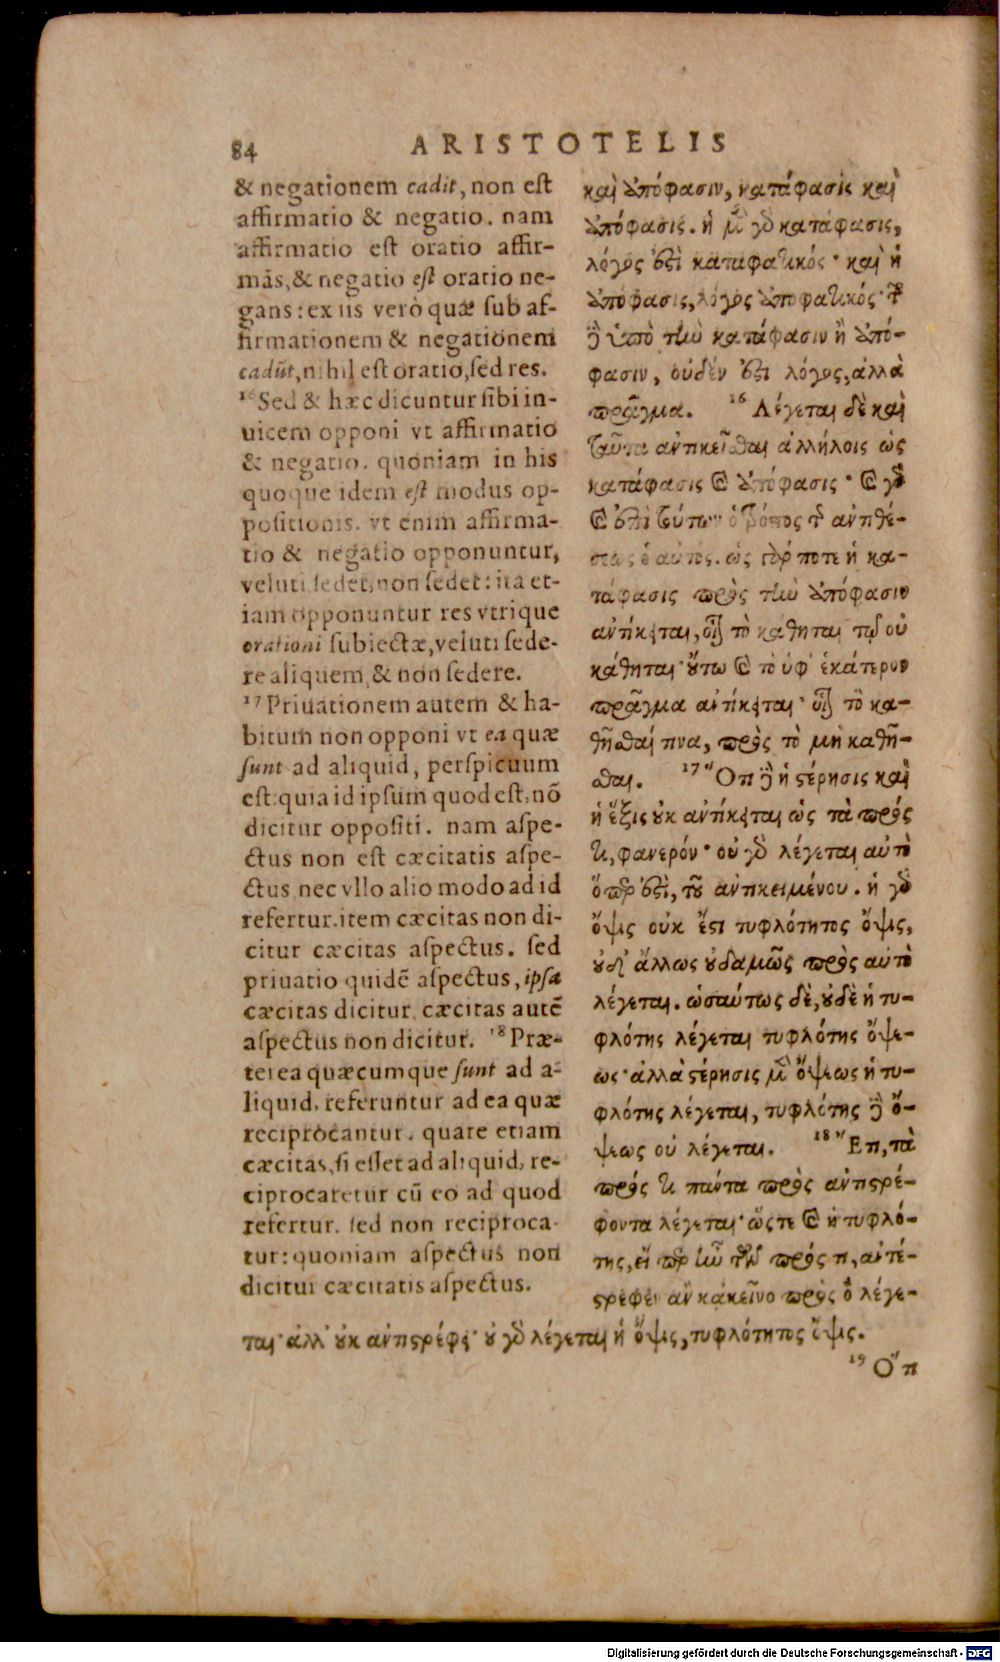 84 ARISTOTELIS
& negationem cadit, non est
affirmatio & negatio. nam
affirmatio est oratio affir-
mãs, & negatio est oratio ne-
gans: ex iis verò quæ sub af-
firmationem & negationem
cadũt, nihil est oratio, sed res.
16 Sed & hæc dicuntur sibi in-
uicem opponi vt affirmatio
& negatio. quoniam in his
quoque idem est modus op-
positionis. vt enim affirma-
tio & negatio opponuntur,
veluti sedet, non sedet: ita et-
iam opponuntur res vtrique
orationi subiectæ, veluti sede-
re aliquem, & non sedere.
17 Priuationem autem & ha-
bitum non opponi vt ea quæ
sunt ad aliquid, perspicuum
est: quia id ipsum quod est, nõ
dicitur oppositi. nam aspe-
ctus non est cæcitatis aspe-
ctus, nec vllo alio modo ad id
refertur. item cæcitas non di-
citur cæcitas aspectus. sed
priuatio quidẽ aspectus, ipsa
cæcitas dicitur, cæcitas autẽ
aspectus non dicitur. 18 Præ-
terea quæcumque sunt ad a-
liquid, referuntur ad ea quæ
reciprocantur. quare etiam
cæcitas, si esset ad aliquid, re-
ciprocaretur cũ eo ad quod
refertur. sed non reciproca-
tur: quoniam aspectus non
dicitur cæcitatis aspectus.
καὶ ἀπόφασιν, κατάφασις καὶ
ἀπόφασις. ἡ μὲν γὸ κατάφασις,
λόγος ἐστὶ καταφατικός· καὶ ἡ
ἀπόφασις, λόγος ἀποφατικός· τῶν
δὲ ὑπὸ τὴν κατάφασιν ἢ ἀπό-
φασιν, οὐδέν ἐστι λόγος, ἀλλὰ
πρᾶγμα. 16 Λέγεται δὲ καὶ
ταῦτα ἀντικεῖσθαι ἀλλήλοις ὡς
κατάφασις καὶ ἀπόφασις· καὶ γὸ
καὶ ἐπὶ τούτων ὁ τρόπος τῆς ἀντιθέ-
σεως ὁ αὐτός. ὡς γάρ ποτε ἡ κα-
τάφασις πρὸς τὴν ἀπόφασιν
ἀντίκειται, οἷον τὸ κάθηται τῷ οὐ
κάθηται· οὕτω καὶ τὸ ὑφ' ἑκάτερον
πρᾶγμα ἀντίκειται· οἷον τὸ κα-
θῆσθαί τινα, πρὸς τὸ μὴ καθῆ-
σθαι. 17 Ὅτι δὲ ἡ στέρησις καὶ
ἡ ἕξις οὐκ ἀντίκειται ὡς τὰ πρός
τι, φανερόν· οὐ γὸ λέγεται αὐτὸ
ὅπερ ἐστὶ, τοῦ ἀντικειμένου. ἡ γὸ
ὄψις οὐκ ἔστι τυφλότητος ὄψις,
οὐδ' ἄλλως οὐδαμῶς πρὸς αὐτὸ
λέγεται. ὡσαύτως δὲ, οὐδὲ ἡ τυ-
φλότης λέγεται τυφλότης ὄψε-
ως· ἀλλὰ στέρησις μὲν ὄψεως ἡ τυ-
φλότης λέγεται, τυφλότης δὲ ὄ-
ψεως οὐ λέγεται. 18 Ἔτι, τὰ
πρός τι πάντα πρὸς ἀντιστρέ-
φοντα λέγεται· ὥστε καὶ ἡ τυφλό-
της, εἴ περ ἦν τῶν πρός τι, ἀντέ-
στρεφεν ἂν κἀκεῖνο πρὸς ὃ λέγε-
ται· ἀλλ' οὐκ ἀντιστρέφει· οὐ γὸ λέγεται ἡ ὄψις, τυφλότητος ὄψις.
19 Ὅτι
Digitalisierung gefördert durch die Deutsche Forschungsgemeinschaft - DFG